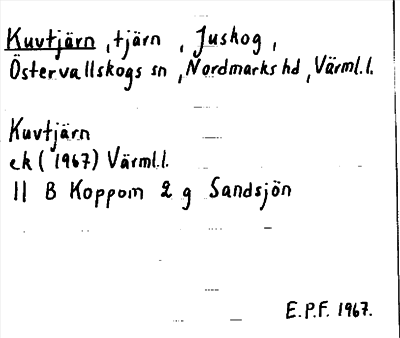 Kuvtjärn, tjärn, Juskog,
Östervallskogs sn, Nordmarks hd, Värml. l.
Kuvtjärn
ek (1967) Värml. l.
11 B Koppom 2 g Sandsjön
E.P.F. 1967.